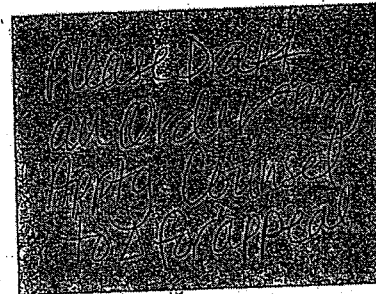 Please Draft
an Order
Aptg. Counsel
for appeal